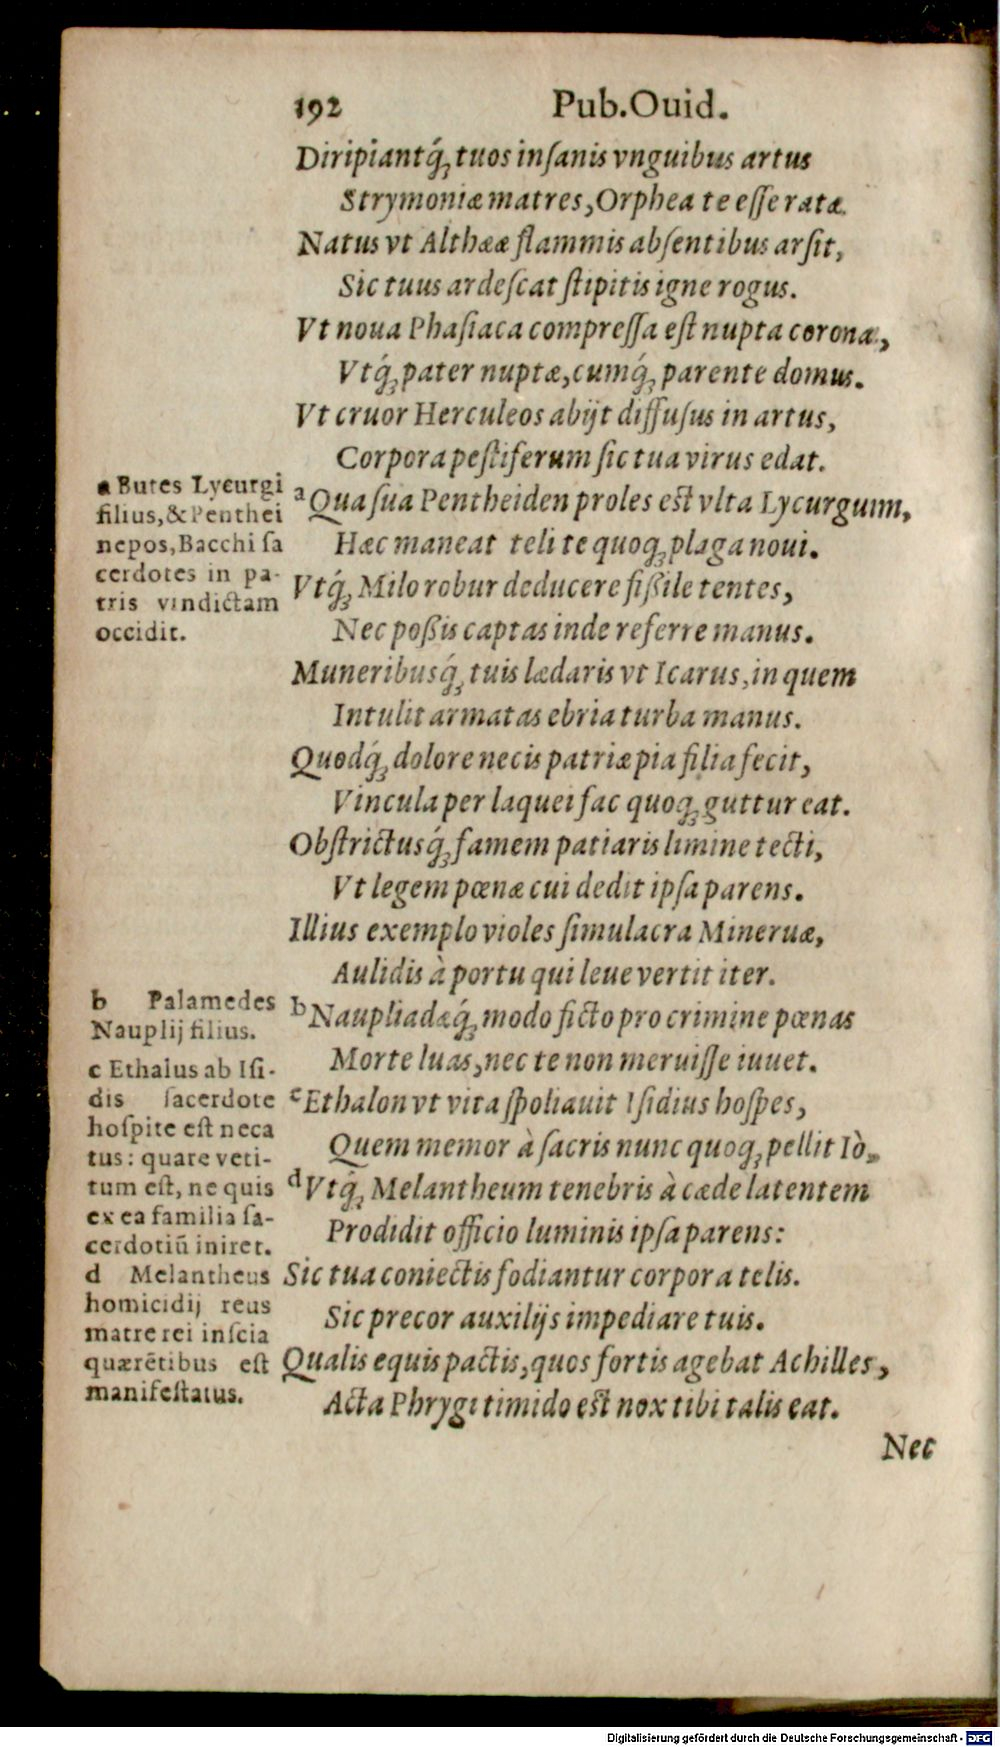 192 Pub. Ouid.
Diripiantq́ꝫ tuos inſanis vnguibus artus
Strymoniæ matres, Orphea te eſſe ratæ.
Natus vt Althææ flammis abſentibus arſit,
Sic tuus ardeſcat ſtipitis igne rogus.
Vt noua Phaſiaca compreſſa eſt nupta corona,
Vtq́ꝫ pater nuptæ, cumq́ꝫ parente domus.
Vt cruor Herculeos abijt diffuſus in artus,
Corpora peſtiferum ſic tua virus edat.
a Qua ſua Pentheiden proles eſt vlta Lycurgum,
Hæc maneat teli te quoqꝫ plaga noui.
Vtq́ꝫ Milo robur deducere fißile tentes,
Nec poßis captas inde referre manus.
Muneribusq́ꝫ tuis lædaris vt Icarus, in quem
Intulit armatas ebria turba manus.
Quodq́ꝫ dolore necis patriæ pia filia fecit,
Vincula per laquei fac quoqꝫ guttur eat.
Obſtrictusq́ꝫ famem patiaris limine tecti,
Vt legem pœnæ cui dedit ipſa parens.
Illius exemplo violes ſimulacra Mineruæ,
Aulidis à portu qui leue vertit iter.
b Naupliadæq́ꝫ modo ficto pro crimine pœnas
Morte luas, nec te non meruiſſe iuuet.
c Ethalon vt vita ſpoliauit Iſidius hoſpes,
Quem memor à ſacris nunc quoqꝫ pellit Iò.
d Vtq́ꝫ Melantheum tenebris à cæde latentem
Prodidit officio luminis ipſa parens:
Sic tua coniectis fodiantur corpora telis.
Sic precor auxilijs impediare tuis.
Qualis equis pactis, quos fortis agebat Achilles,
Acta Phrygi timido eſt nox tibi talis eat.
Nec
a Butes Lycurgi
filius, & Penthei
nepos, Bacchi ſa
cerdotes in pa-
tris vindictam
occidit.
b Palamedes
Nauplij filius.
c Ethalus ab Iſi-
dis ſacerdote
hoſpite eſt neca
tus: quare veti-
tum eſt, ne quis
ex ea familia ſa-
cerdotiū iniret.
d Melantheus
homicidij reus
matre rei inſcia
quærētibus eſt
manifeſtatus.
Digitalisierung gefördert durch die Deutsche Forschungsgemeinschaft - DFG